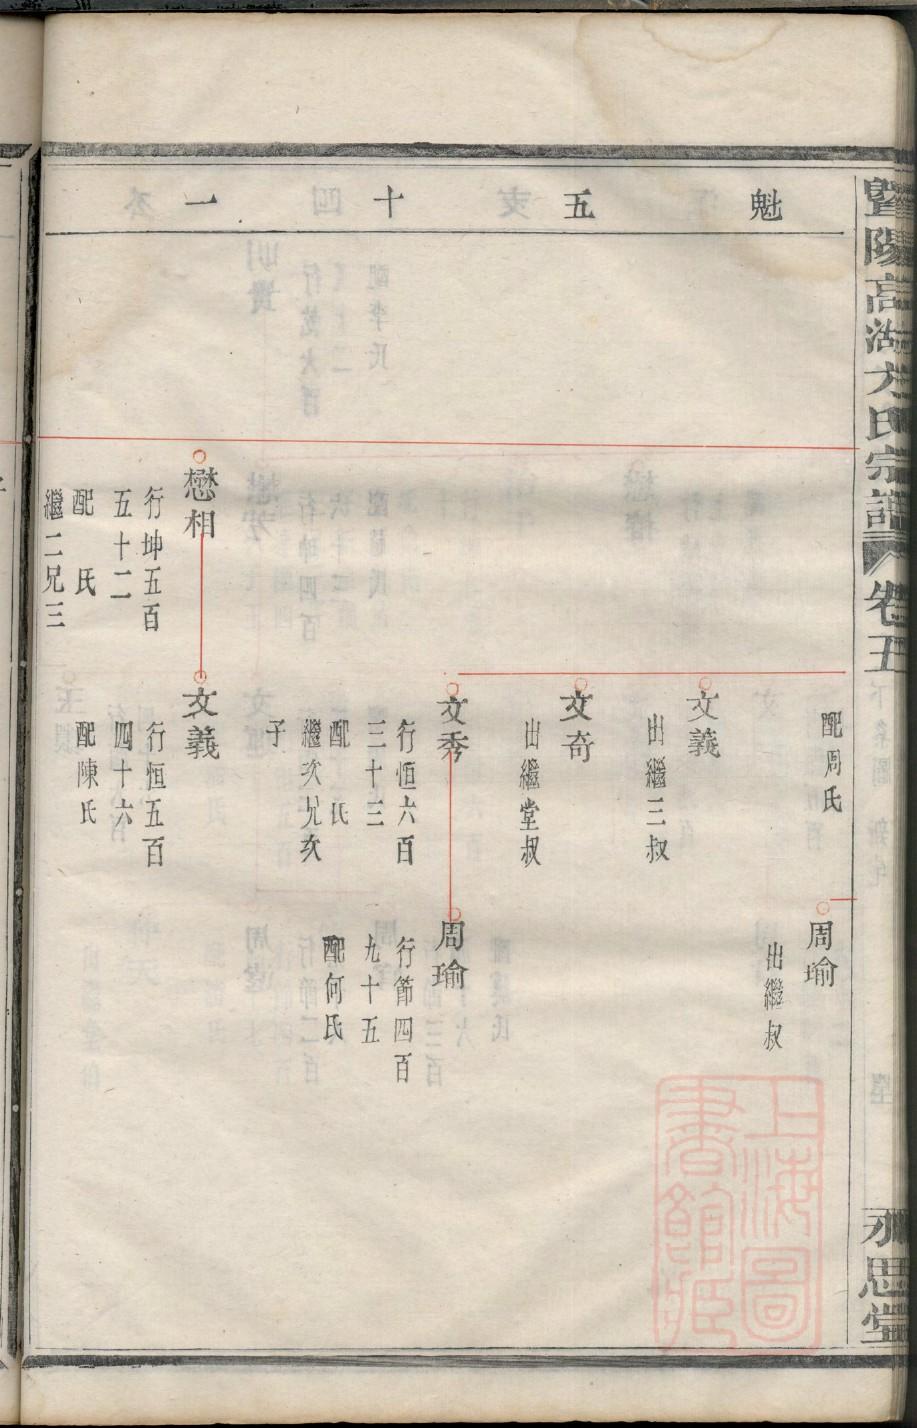 魁五十一
配周氏
周瑜
出繼叔
文義
出繼三叔
文奇
出繼堂叔
文秀
行恒六百
三十三
配 氏
繼次兄次
子
周瑜
行節四百
九十五
配何氏
懋相
行坤五百
五十二
配 氏
繼二兄三
文義
行恒五百
四十六
配陳氏
暨陽高湖方氏宗譜
卷五
永思堂
上海圖
書館藏